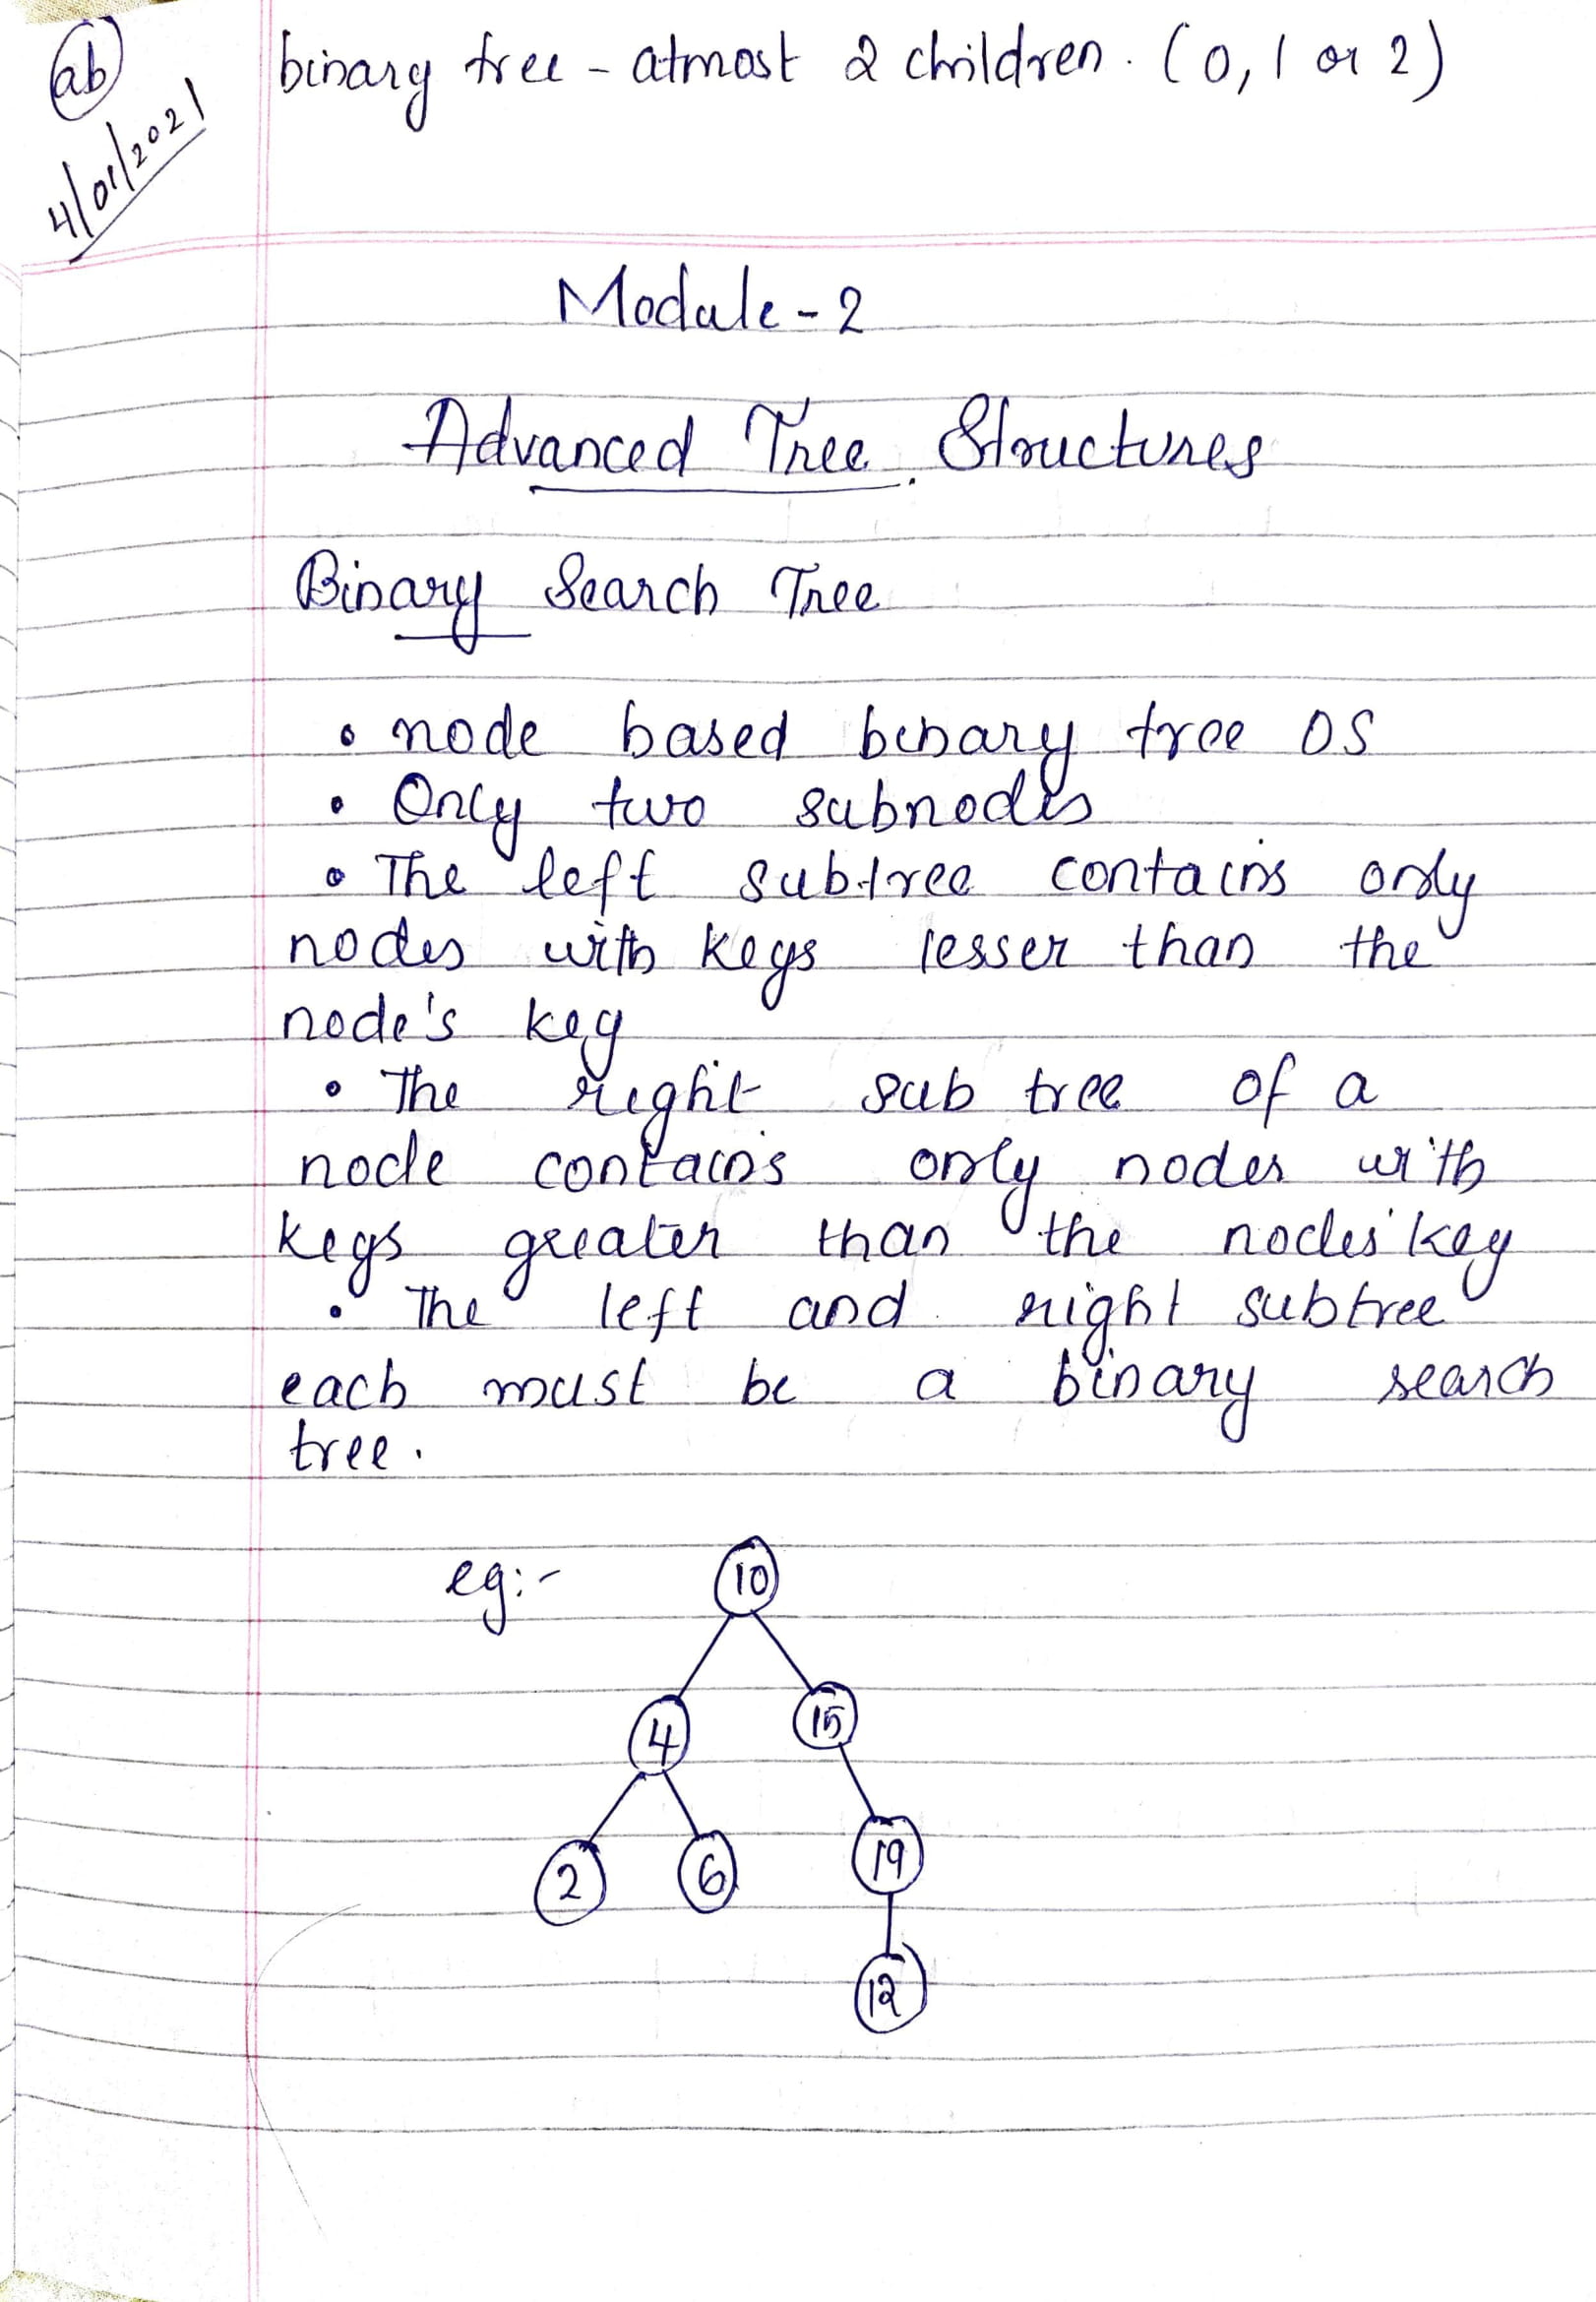 ab
4/01/2021
binary tree - atmost 2 children. (0, 1 or 2)
Module - 2
Advanced Tree Structures
Binary Search Tree
• node based binary tree DS
• Only two subnodes
• The left subtree contains only
nodes with keys lesser than the
node's key
• The right sub tree of a
node contains only nodes with
keys greater than the nodes' key
• The left and right subtree
each must be a binary search
tree.
eg:- 10
4 15
2 6 19
12